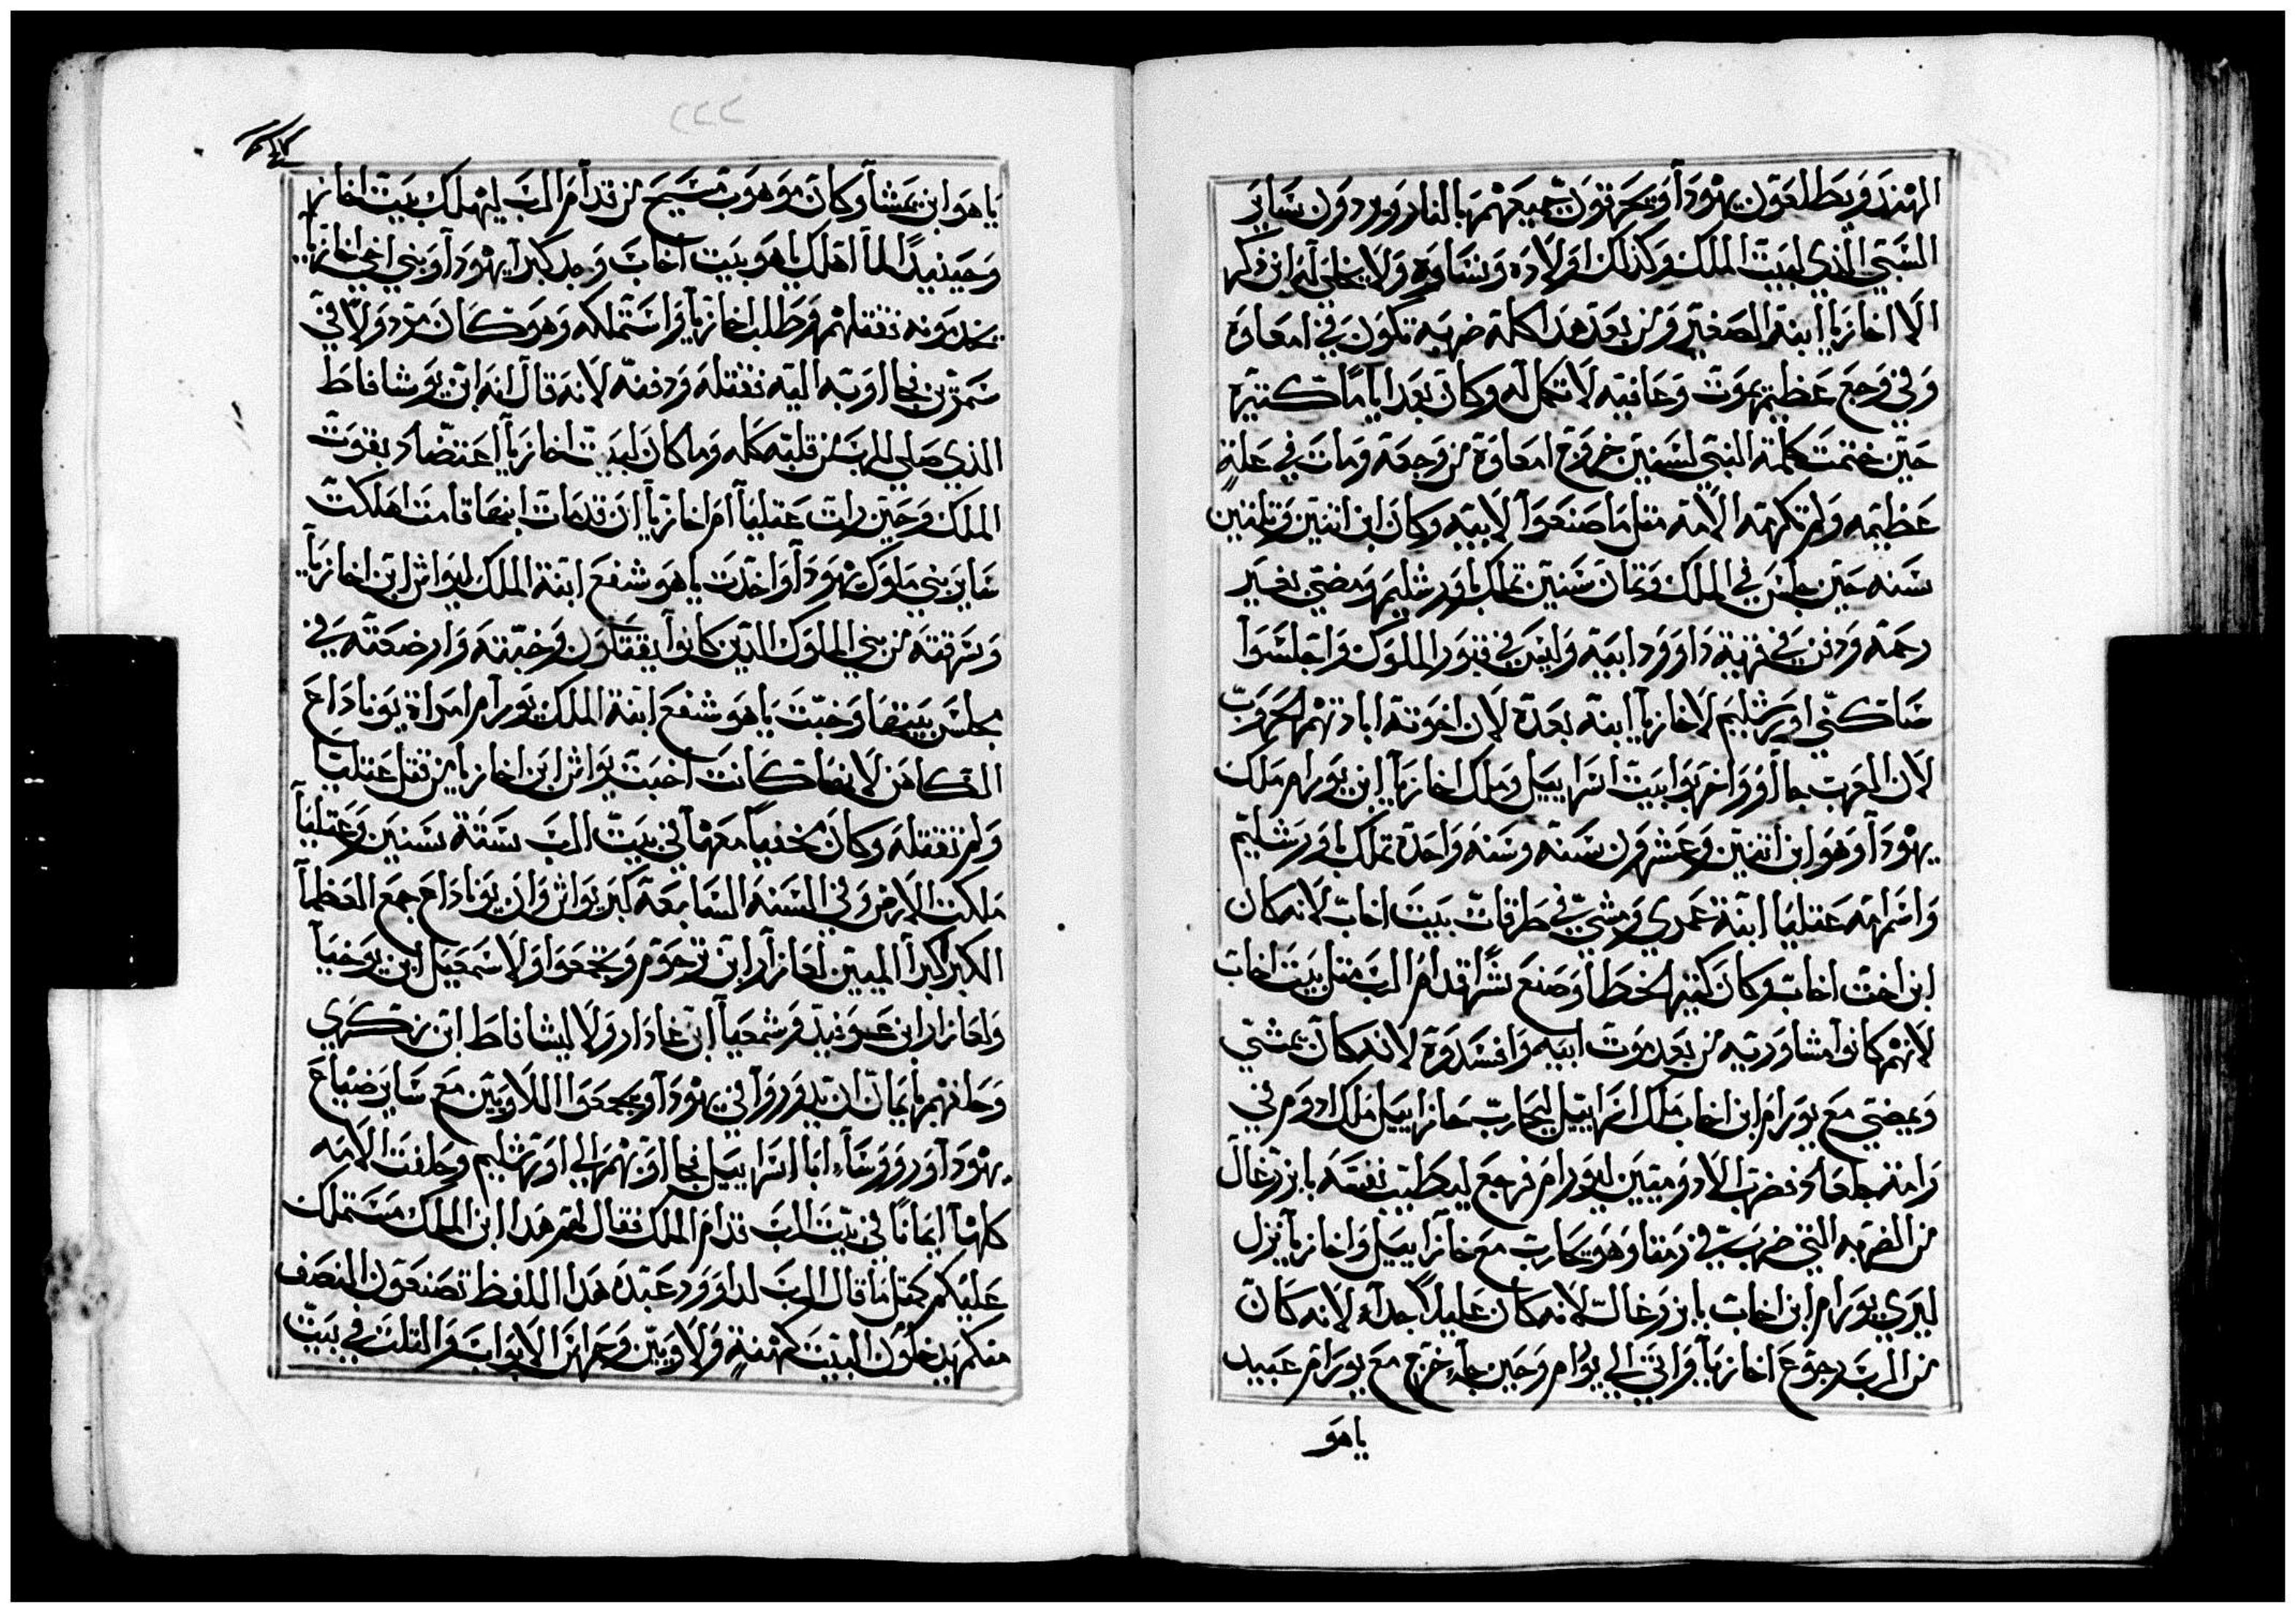 الهند ويطلعون يهودا ويحرقون جميعهم بالنار ويردون ساير
السبي الذي لبيت الملك وكذلك اولاده ونساوه ولا يخلي له ابن ذكر
الا اخازيا ابنه الصغير ومن بعد هدا كله ضربه تكون في امعاوه
وفي وجع عظيم يموت وعافيه لا تكمل له وكان بعد اياما كتيره
حين ختمت كلمة النبي لسنين خروج امعاوه من وجعه ومات في علة
عظيمه ولم تكرمه الامه متل ما صنعوا لابيه وكان ابن اتنين وتلتين
سنه حين جلس في الملك وتمان سنين تملك باورشليم ومضي بغير
رحمه ودفن في قرية داوود ابيه وليس في قبور الملوك واجلسوا
ساكني اورشليم لاخازيا ابنه بعده لان اخوته ابادتهم الحروب
لان العرب جاوو واخربوا بيت اسراييل وملك اخازيا ابن يورام ملك
يهودا وهو ابن اتنين وعشرون سنه وسنه واحده تملك باورشليم
واسم امه عتليا ابنة عمري ومشي في طرقات بيت اخاب لانه كان
ابن اخت اخاب وكان كتير الخطا وصنع شرا قدام الرب متل بيت اخاب
لانهم كانوا مشاوريه من بعد موت ابيه وافسدوه لانه كان يمشي
ويمضي مع يورام ابن اخاب ملك اسراييل ليحارب حازاييل ملك ادوم في
رامة جلعاد فضرب الادوميين ليورام فرجع ليطيب نفسه بايزرعال
من الضربه التي ضرب في رمتا وهو يحارب مع حازاييل واخازيا نزل
ليري يورام ابن اخاب بايزرعال لانه كان عليلا جدا لانه كان
من الرب رجوع اخازيا واتي الي يورام وحين جا خرج مع يورام عبيد
ياهو
٢٢٢
ياهو ابن نمشا وكان موهوب مسيح من قدام الرب ليهلك بيت اخاز
وحينيدا لما اهلك ياهو بيت اخاب وجد كبرا يهودا وبني اخي اخازيا
يخدمونه فقتلهم وطلب اخازيا واستملكه وهو كان مرد ولا في
سمرين فجااو به اليه فقتله ودفنه لانه قال انه ابن يوشافاط
الذي صلي للرب من قلبه كله وما كان لبيت اخازيا اعتضاد بقوت
الملك وحين رات عتليا ام اخازيا ان قد مات ابنها قامت اهلكت
ساير بني ملوك يهودا واخدت ياهو شفع ابنة الملك ليواش ابن اخازيا
وسرقته من بني الملوك الذين كانوا يقتلون وخبته وارضعته في
مجلس بيتها وخبت ياهو شفع ابنة الملك يورام امراة يوناداع
الكاهن لانها كانت اخت يواش ابن اخازيا من قتل عتليا
ولم تقتله وكان مخفيا معهما في بيت الرب ستة سنين وعتليا
ملكت الارض وفي السنه السابعه كبر يواش وان يوناداع جمع العظما
الكبرا المبين لعازار ابن ترحوم وتجمعوا ولاسمعيل ابن يوحنا
ولعازار ابن عوفيد وشمعيا ابن عادار ولاليشافاط ابن زكري
وحلفهم بايمان ان يدوروا في يهودا ويجمعوا اللاويين مع ساير ضياع
يهودا وروسا ابا اسراييل فجا اوبهم الي اورشليم وحلفت الامه
كلها ايمانا في بيت الرب قدام الملك فقال لهم هدا ابن الملك مستملك
عليكم كمتل ما قال الرب لداوود عبده هدا اللفظ تصنعون النصف
منكم يدخلون البيت كهنة ولاويين وحراس الابواب والتلت في بيت